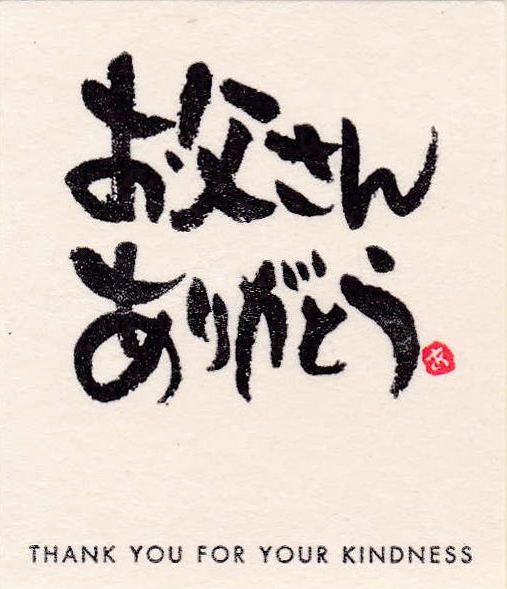 お父さん
ありがとう
THANK YOU FOR YOUR KINDNESS